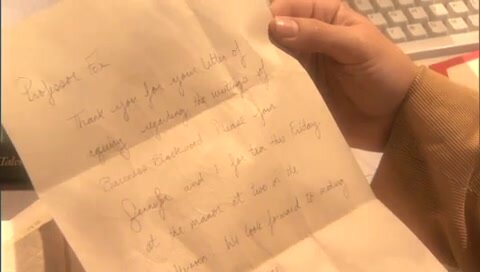 Professor Fox
Thank you for your letter of
inquiry regarding the writings of
Baroness Blackwood. Please join
Jennifer and I for tea this Friday
at the manor at two in the
We look forward to making
Tales